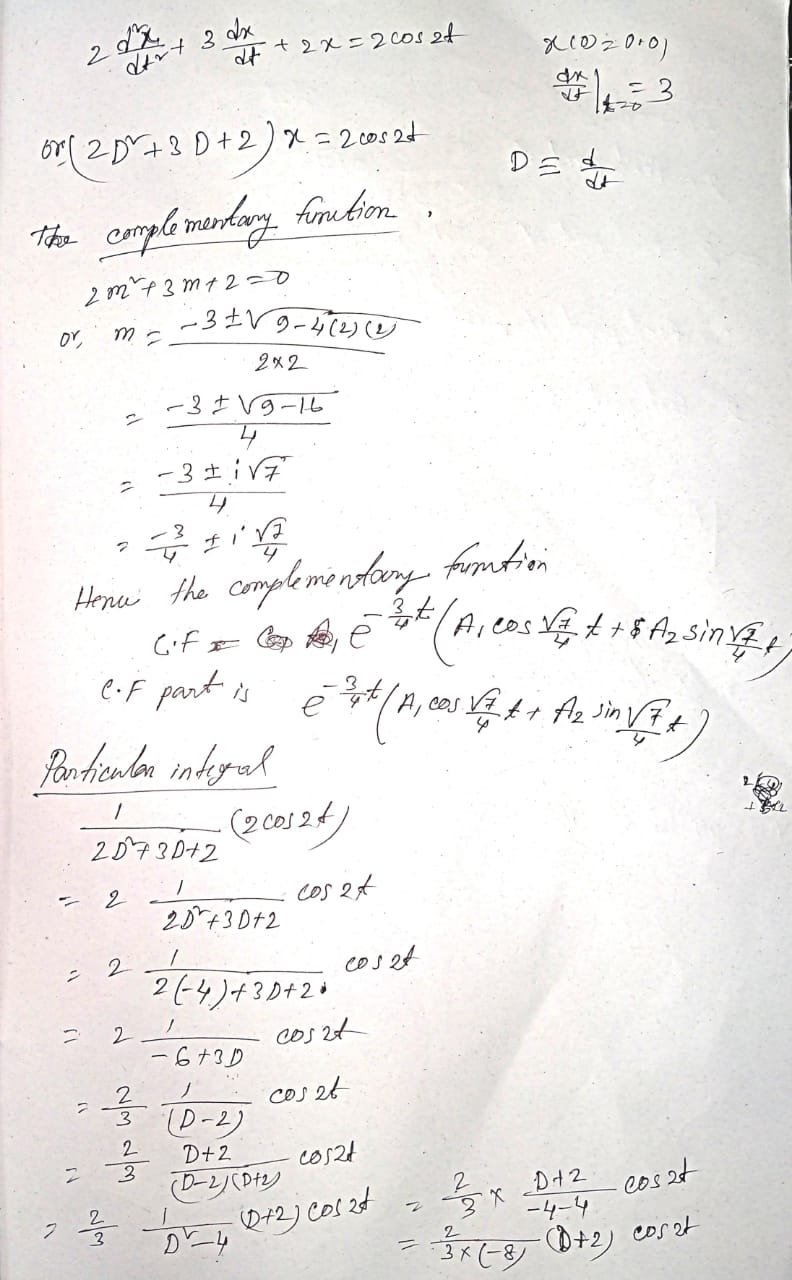 2 d²x/dt² + 3 dx/dt + 2x = 2cos2t    x(0) = 0.0,
dx/dt|t=0 = 3
or, (2D² + 3D + 2) x = 2cos2t    D ≡ d/dt
The complementary function,
2m² + 3m + 2 = 0
or, m = (-3 ± √9-4(2)(2))/(2×2)
= (-3 ± √9-16)/4
= (-3 ± i√7)/4
= -3/4 ± i √7/4
Hence the complementary function
C.F = e^(-3/4 t) (A₁ cos √7/4 t + A₂ sin √7/4 t)
C.F part is e^(-3/4 t) (A₁ cos √7/4 t + A₂ sin √7/4 t)
Particular integral
1/(2D²+3D+2) (2cos2t)
= 2 1/(2D²+3D+2) cos2t
= 2 1/(2(-4)+3D+2) cos2t
= 2 1/(-6+3D) cos2t
= 2/3 1/(D-2) cos2t
= 2/3 (D+2)/((D-2)(D+2)) cos2t
= 2/3 1/(D²-4) (D+2) cos2t
= 2/3 × (D+2)/(-4-4) cos2t
= 2/(3×(-8)) (D+2) cos2t